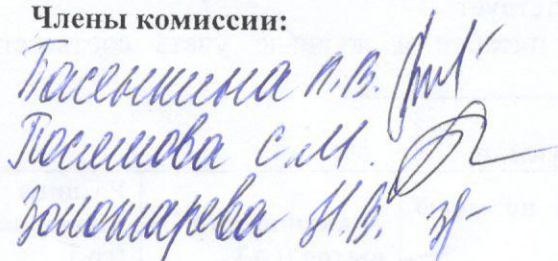 Члены комиссии:
Пасенкина П.В.
Посемова С.М.
Золотарева Н.В.